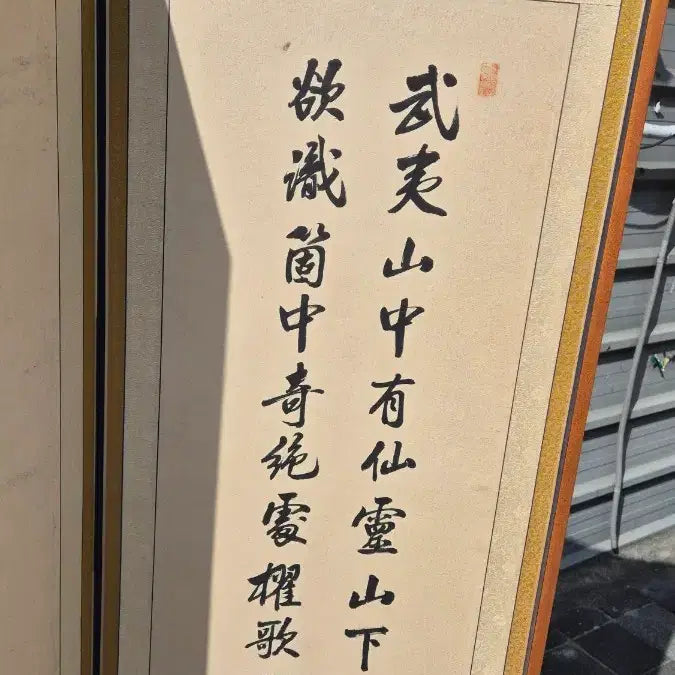 武夷山中有仙靈山下
欲識箇中奇絶處櫂歌